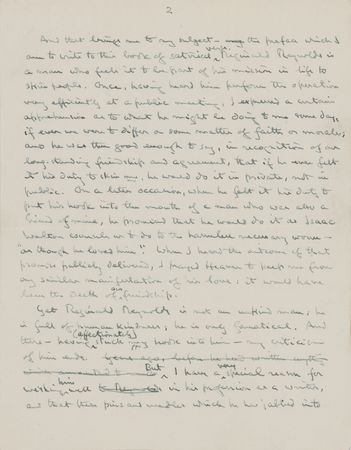 2
And that brings me to my subject – my the preface which I
am to write to this book of satirical verse. Reginald Reynolds is
a man who feels it to be part of his mission in life to
skin people. Once, having heard him perform the operation
very efficiently at a public meeting, I expressed a certain
apprehension as to what he might be doing to me some day,
if ever we were to differ on some matter of faith or morals;
and he was then good enough to say, in recognition of our
long-standing friendship and agreement, that if he ever felt
it his duty to skin me, he would do it in private, not in
public. On a later occasion, when he felt it his duty to
put his hook into the mouth of a man who was also a
friend of mine, he promised that he would do it as Isaac
Walton counsels us to do to the harmless necessary worm –
"as though he loved him". When I heard the outcome of that
promise publicly delivered, I prayed Heaven to keep me from
any similar manifestation of his love; it would have
been the death of our friendship.
Yet Reginald Reynolds is not an unkind man; he
is full of human kindness; he is only fanatical. And
there – having (affectionately) stuck my hook into him – my criticism
of him ends. years ago, before he had written anything
But I have a very special reason for
wishing him well to Reynolds in his profession as a writer,
and that these pins and needles which he has jabbed into